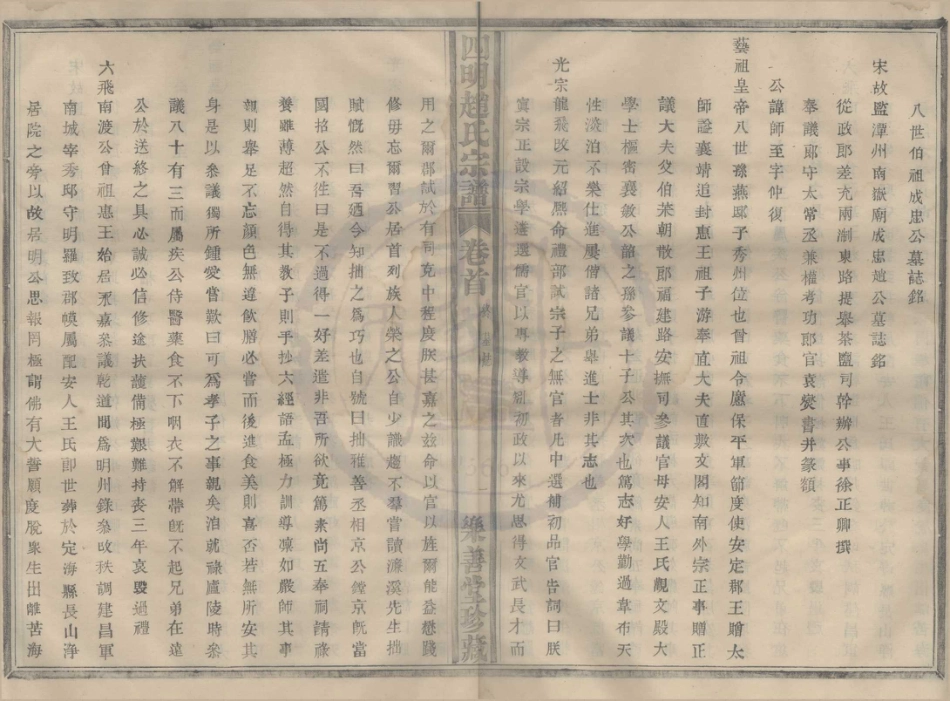 八世伯祖成忠公墓誌銘
宋故監潭州南嶽廟成忠趙公墓誌銘
從政郎差充兩淛東路提舉茶鹽司幹辦公事徐正卿撰
奉議郎守太常丞兼權考功郎官袁燮書并篆額
公諱師至字仲復
藝祖皇帝八世孫燕王子秀州位也曾祖令 保平軍節度使安定郡王贈太
師謚襄靖追封惠王祖子游奉直大夫直敷文閣知南外宗正事贈正
議大夫父伯 朝散郎福建路安撫司參議官母安人王氏觀文殿大
學士樞密襄敏公韶之孫參議十子公其次也篤志好學勤過韋布天
性淡泊不樂仕進屢偕諸兄弟舉進士非其志也
光宗龍飛改元紹熙命禮部試宗子之無官者凡中選補初品官告詞曰朕
寘宗正設宗學遴選儒官以專教導 初政以來尤思得文武長才而
四明趙氏宗譜 卷首 樂善堂珍藏
用之爾鄰試於有司克中程度朕甚嘉之茲命以官以旌爾能益懋踐
修毋忘爾習公居首列族人榮之公自少識趣不羣嘗讀濂溪先生拙
賦慨然曰吾廼今知拙之爲巧也自號曰拙雅善丞相京公鏜京旣當
國招公不徃曰是不過得一好差遣非吾所欲竟篤素尚五奉祠請祿
養雖薄超然自得其教子則手抄六經語孟極力訓導凜如嚴師其事
親則舉足不忘顏色無違飮膳必嘗而後進食美則喜否若無所安其
身是以叅議獨所鍾愛嘗歎曰可爲孝子之事親矣洎就祿廬陵時叅
議八十有三而屬疾公侍醫藥食不下咽衣不解帶旣不起兄弟在遠
公於送終之具必誠必信修途扶護備極艱難持喪三年哀毀過禮
六飛南渡公曾祖惠王始居永嘉叅議乾道間爲明州錄叅改秩調建昌軍
南城宰秀邸守明羅致郡幙屬配安人王氏卽世葬於定海縣長山淨
居院之旁以故居明公思報罔極謂佛有大誓願度脫衆生出離苦海